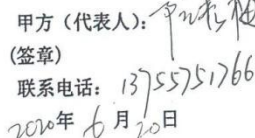 甲方（代表人）：
(签章)
联系电话：13755751766
2020年6月20日